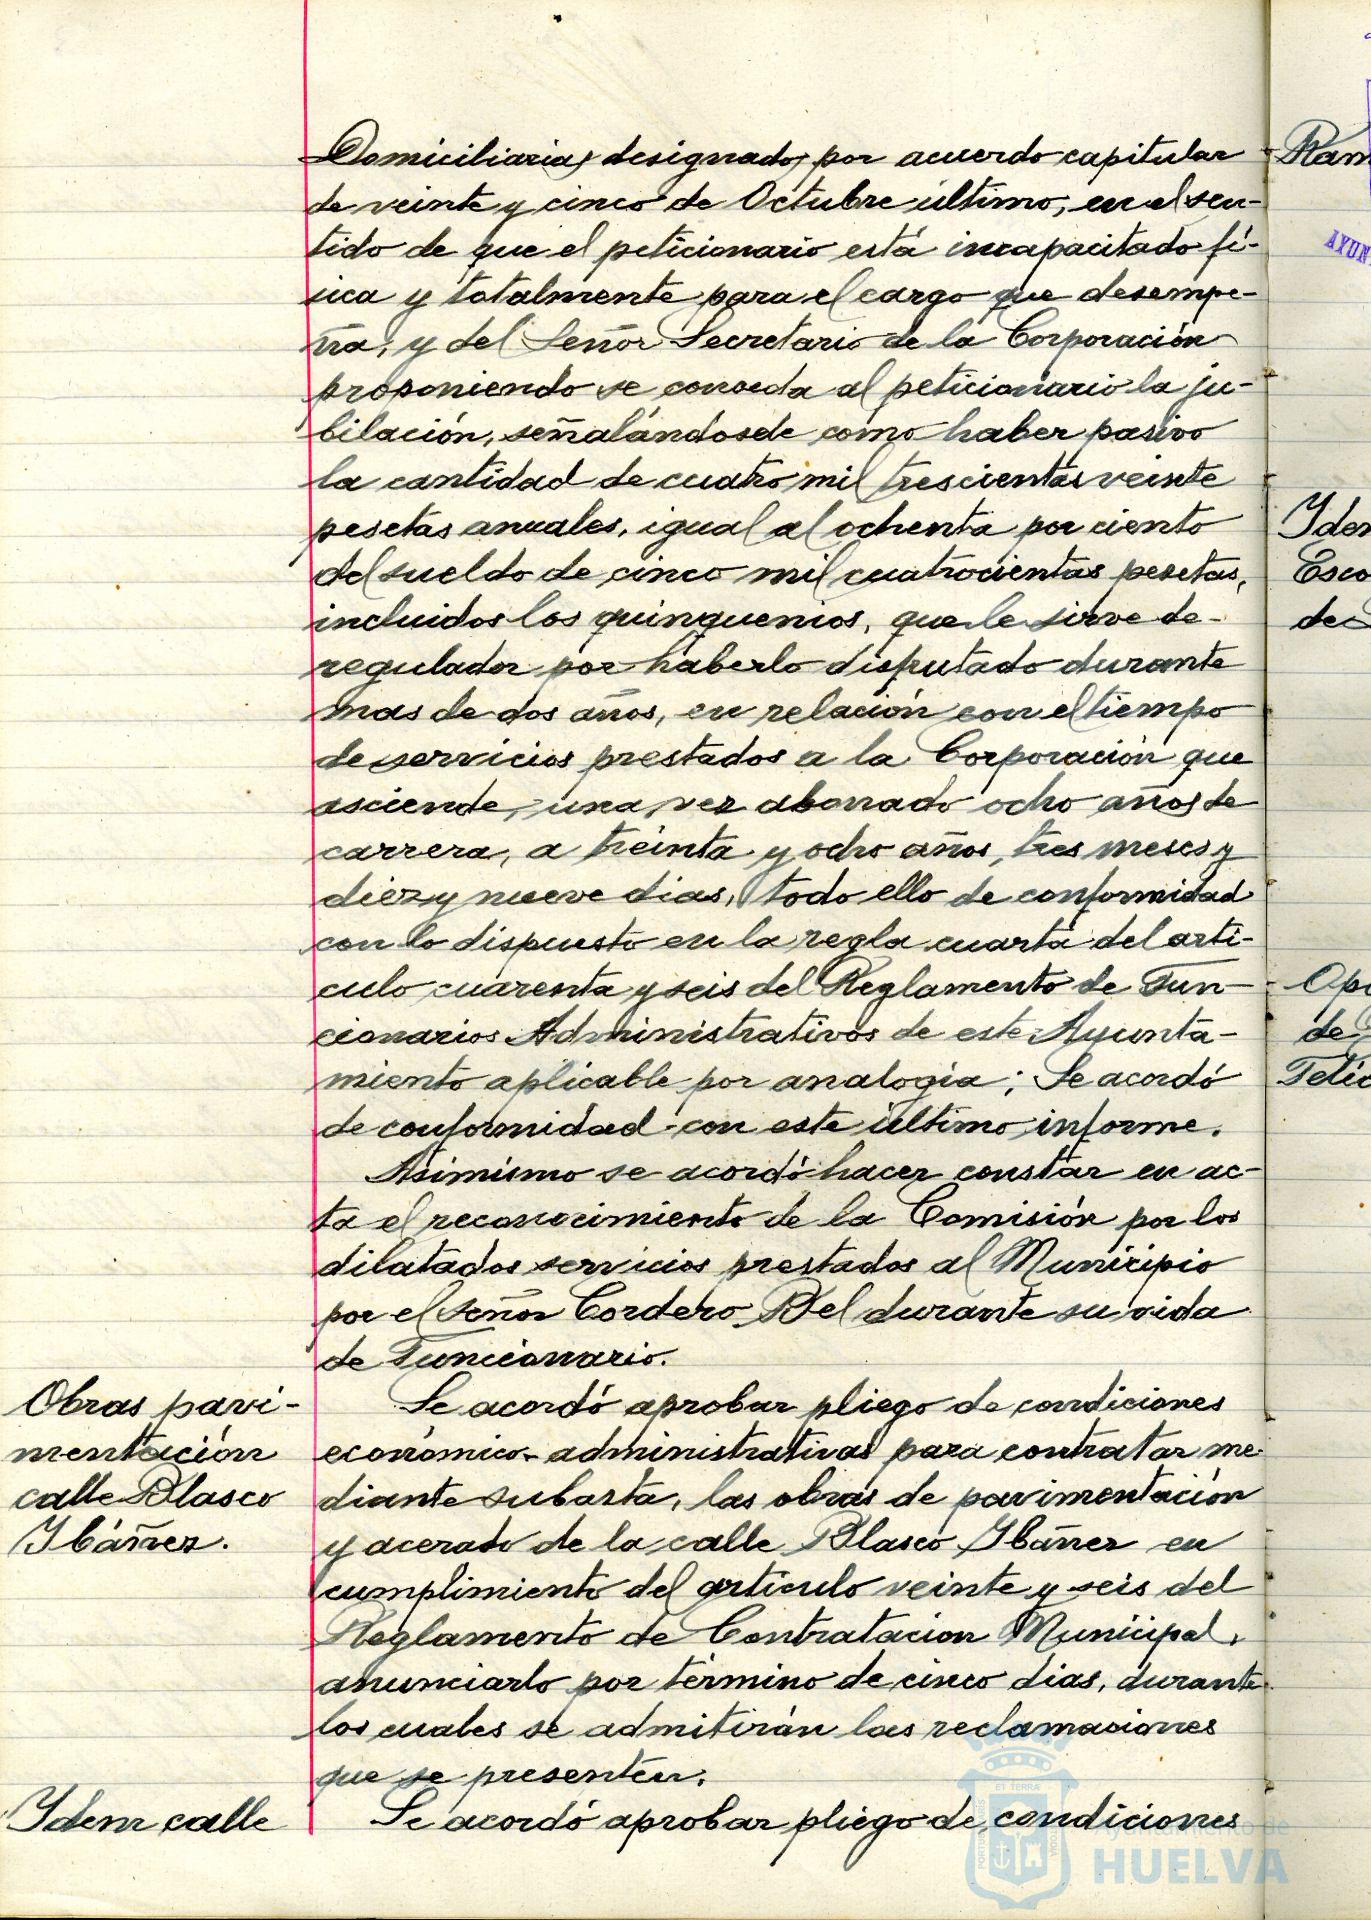 Domiciliaria, designado, por acuerdo capitular
de veinte y cinco de Octubre último, en el sen-
tido de que el peticionario está incapacitado fí-
sica y totalmente para el cargo que desempe-
ña, y del Señor Secretario de la Corporación
proponiendo se conceda al peticionario la ju-
bilación, señalándosele como haber pasivo
la cantidad de cuatro mil trescientas veinte
pesetas anuales, igual al ochenta por ciento
del sueldo de cinco mil cuatrocientas pesetas,
incluidos los quinquenios, que le sirve de
regulador por haberlo disfrutado durante
mas de dos años, en relación con el tiempo
de servicios prestados a la Corporación que
asciende, una vez abonado ocho años de
carrera, a treinta y ocho años, tres meses y
diez y nueve dias, todo ello de conformidad
con lo dispuesto en la regla cuarta del arti-
culo cuarenta y seis del Reglamento de Fun-
cionarios Administrativos de este Ayunta-
miento aplicable por analogia; Se acordó
de conformidad con este último informe.
Asimismo se acordó hacer constar en ac-
ta el reconocimiento de la Comisión por los
dilatados servicios prestados al Municipio
por el Señor Cordero Bel durante su vida
de Funcionario.
Obras pavi-
mentación
calle Blasco
Ibáñez.
Se acordó aprobar pliego de condiciones
económico-administrativas para contratar me-
diante subasta, las obras de pavimentación
y acerado de la calle Blasco Ibáñez en
cumplimiento del artículo veinte y seis del
Reglamento de Contratacion Municipal,
anunciarlo por término de cinco dias, durante
los cuales se admitirán las reclamaciones
que se presenten.
Idem calle
Se acordó aprobar pliego de condiciones
Ram
AYUN
Iden
Esco
de
Opo
de
Telé
ET TERRÆ
Ayuntamiento de
HUELVA